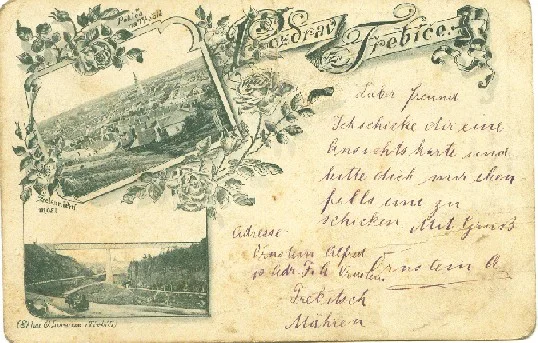 Pozdrav
z Třebíče.
Lieber Freund
Ich schicke dir eine
Ansichtskarte und
bitte dich mir eben
falls eine zu
schicken Mit Gruss
Ornstein A
Adresse
Ornstein Alfred
Ornstein
Trebitsch
Mähren